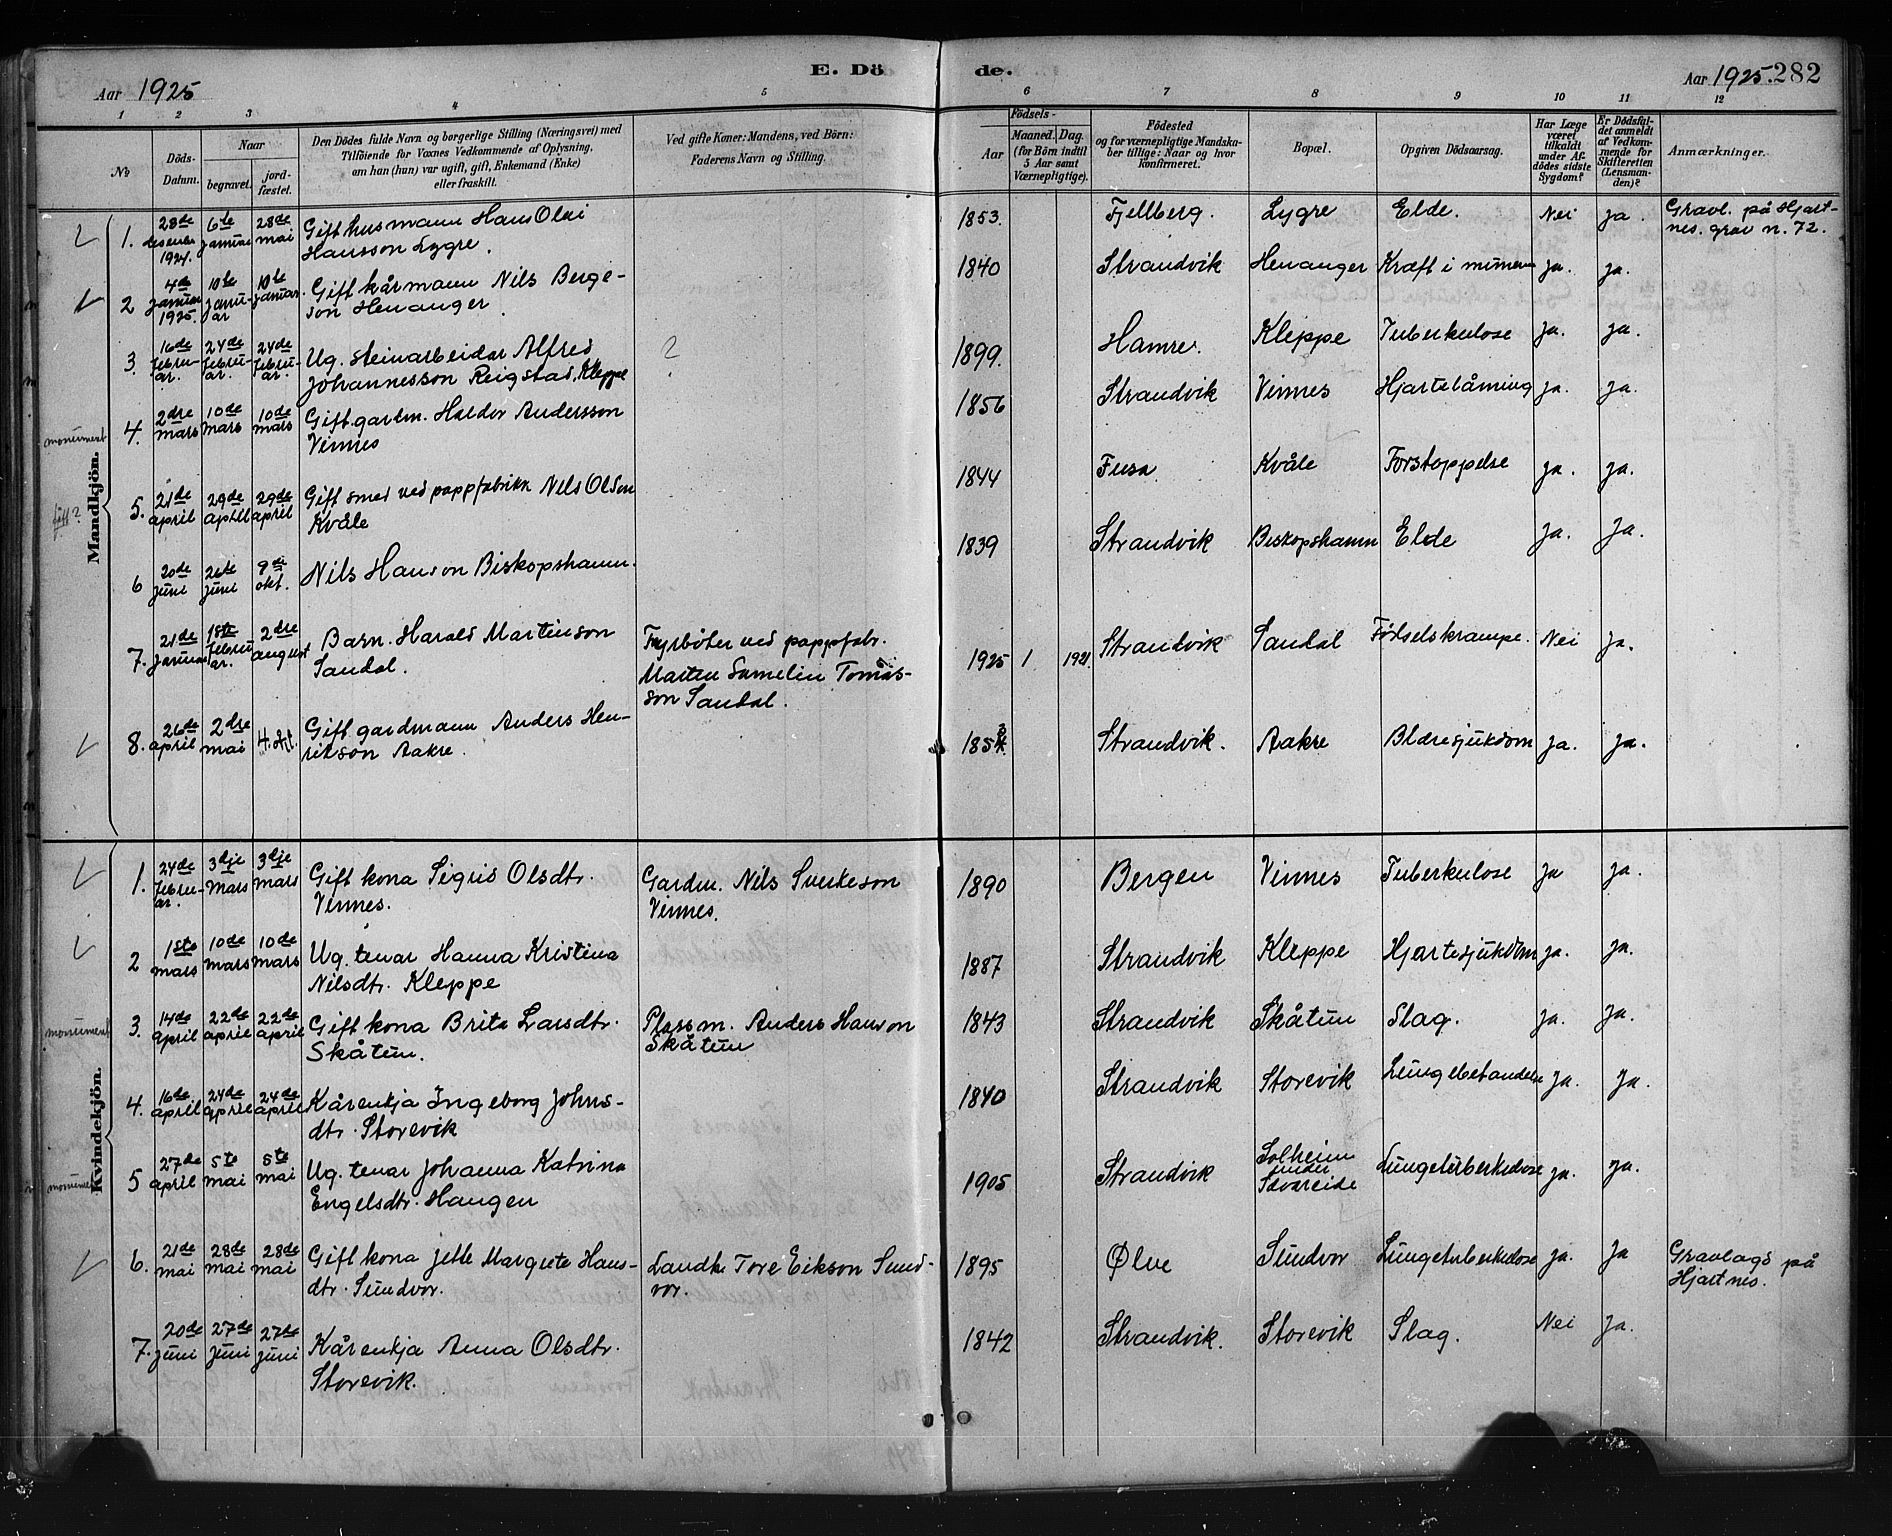 E. Döde.
Aar 1925
Aar 1925. 282
1 2 3 4 5 6 7 8 9 10 11 12
No
Döds-Datum.
Naar
begravet.
jordfæstet.
Den Dödes fulde Navn og borgerlige Stilling (Næringsvei) med
Tilföiende for Voxnes Vedkommende af Oplysning,
om han (hun) var ugift, gift, Enkemand (Enke)
eller fraskilt.
Ved gifte Koner: Mandens, ved Börn:
Faderens Navn og Stilling.
Födsels-
Aar
Maaned. Dag.
(for Börn indtil
5 Aar samt
Værnepligtige).
Födested
og for værnepligtige Mandska-
ber tillige: Naar og hvor
konfirmeret.
Bopæl.
Opgiven Dödsaarsag.
Har Læge
været
tilkaldt
under Af-
dödes sidste
Sygdom?
Er Dödsfal-
det anmeldt
af Vedkom-
mende for
Skifteretten
(Lensman-
den)?
Anmærkninger.
Mandkjön.
1. 28de desember 1924. 6te januar 28de mai Gift husmann Hans Olai 1853. Fjellberg. Lygre Elde. Nei ja. Gravl. på Hjart-
Hansson Lygre. nes. grav n. 72.
2 4de januar 1925. 10de januar 10de januar. Gift kårmann Nils Berge- 1840 Strandvik Henanger Kræft i munnen ja. ja.
son Henanger.
3. 16de februar. 24de februar. 24de februar. Ug. steinarbeidar Alfred ? 1899. Hamre. Kleppe Tuberkulose ja. ja.
Johannesson Reigstad, Kleppe
monument 4. 2dre mars 10de mars 10de mars Gift gardm. Haldor Andersson 1856 Strandvik Vinnes Hjartelåming ja. ja.
Vinnes
gift? 5. 21de april 29de april 29de april Gift smed ved pappfabrikk Nils Olson 1844 Fusa Kvåle Forstoppelse ja. ja.
Kvåle
6 20de juni 26de juni 9de okt. Nils Hanson Biskopshamn. 1839 Strandvik Biskopshamn Elde ja. ja.
7. 21de januar 1ste februar. 2dre august Barn. Harald Martinson Fyrbøter ved pappfabr. 1925 1 1921. Strandvik Sandal Fødselskrampe. Nei ja.
Sandal. Martin Samelin Tomas-
son Sandal.
8. 26de april 2dre mai 4. okt. Gift gardmann Anders Hen- 1853 Strandvik. Aakre Blæresjukdom ja. ja.
rikson Aakre.
Kvindekjön.
1. 24de februar. 3dje mars 3dje mars Gift kona Sigrid Olsdtr. Gardm. Nils Sverkeson 1890 Bergen Vinnes Tuberkulose ja ja.
Vinnes. Vinnes.
2 1ste mars 10de mars 10de mars Ug. tenar Hanna Kristina 1887 Strandvik Kleppe Hjartesjukdom ja. ja.
Nilsdtr. Kleppe
monument 3. 14de april 22de april 22de april Gift kona Brita Larsdtr. Plassm. Anders Hanson 1843 Strandvik Skåtun Slag. ja. ja.
Skåtun. Skåtun
4. 16de april 24de april 24de april Kårenkja Ingeborg Johns- 1840 Strandvik Storevik Lungebetendelse ja. ja.
dtr. Storevik
monument 5 27de april 5te mai 5te mai Ug. tenar Johanna Katrina 1905 Strandvik Solheim under Sævareide Lungetuberkulose ja. ja.
Engelsdtr. Haugen
6. 21de mai 28de mai 28de mai Gift kona Jette Margrete Hans- Landh. Tore Eikson Sund- 1895 Ølve Sundvor Lungetuberkulose ja. ja Gravlagd på
dtr. Sundvor. vor. Hjartnes.
7. 20de juni 27de juni 27de juni Kårenkja Anna Olsdtr. 1842 Strandvik. Storevik Slag. Nei ja.
Storevik.